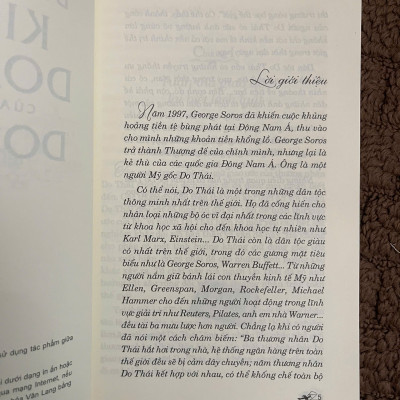 KI
DO
CỦA
DO
sử dụng tác phẩm giữa
i dưới dạng in ấn hoặc
ua mạng Internet, nếu
hóa Văn Lang bằng
Lời giới thiệu
Năm 1997, George Soros đã khiến cuộc khủng
hoảng tiền tệ bùng phát tại Đông Nam Á, thu vào
cho mình những khoản tiền khổng lồ. George Soros
trở thành Thượng đế của chính mình, nhưng lại là
kẻ thù của các quốc gia Đông Nam Á. Ông là một
người Mỹ gốc Do Thái.
Có thể nói, Do Thái là một trong những dân tộc
thông minh nhất trên thế giới. Họ đã cống hiến cho
nhân loại những bộ óc vĩ đại nhất trong các lĩnh vực
từ khoa học xã hội cho đến khoa học tự nhiên như
Karl Marx, Einstein... Do Thái còn là dân tộc giàu
có nhất trên thế giới, trong đó các gương mặt tiêu
biểu như là George Soros, Warren Buffett... Từ những
người nắm giữ bánh lái con thuyền kinh tế Mỹ như
Ellen, Greenspan, Morgan, Rockefeller, Michael
Hammer cho đến những người hoạt động trong lĩnh
vực giải trí như Reuters, Pilates, anh em nhà Warner...
đều tài ba mưu lược hơn người. Chẳng lạ khi có người
đã nói một cách châm biếm: “Ba thương nhân Do
Thái hắt hơi trong nhà, hệ thống ngân hàng trên toàn
thế giới đều sẽ bị cảm dây chuyền; năm thương nhân
Do Thái kết hợp với nhau, có thể khống chế toàn bộ